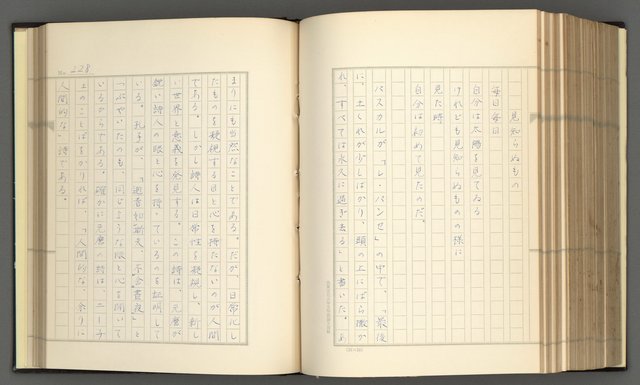 見知らぬもの
毎日毎日
自分は太陽を見てゐる
けれども見知らぬものの様に
見た時
自分は初めて見たのだ。
パスカルが「レ・パンセ」の中で、「最後
に、土くれが少しばかり、頭の上にばら撒か
れ、すべては永久に過ぎ去る」と書いた。あ
No. 228
まりにも当然なことである。だが、日常化し
たものを凝視する目と心を持たないのが人間
である。しかし詩人は日常性を凝視し、新し
い世界と意義を発見する。この詩は、元麿が
鋭い詩人の眼と心を持っているのを証明して
いる。孔子が、「逝者如斯夫、不舎昼夜」と
つぶやいたのも、同じような眼と心を開いて
いるからである。確かに元麿の詩は、ニーチ
のことばをかりれば、「人間的な、余りに
人間的な」詩である。